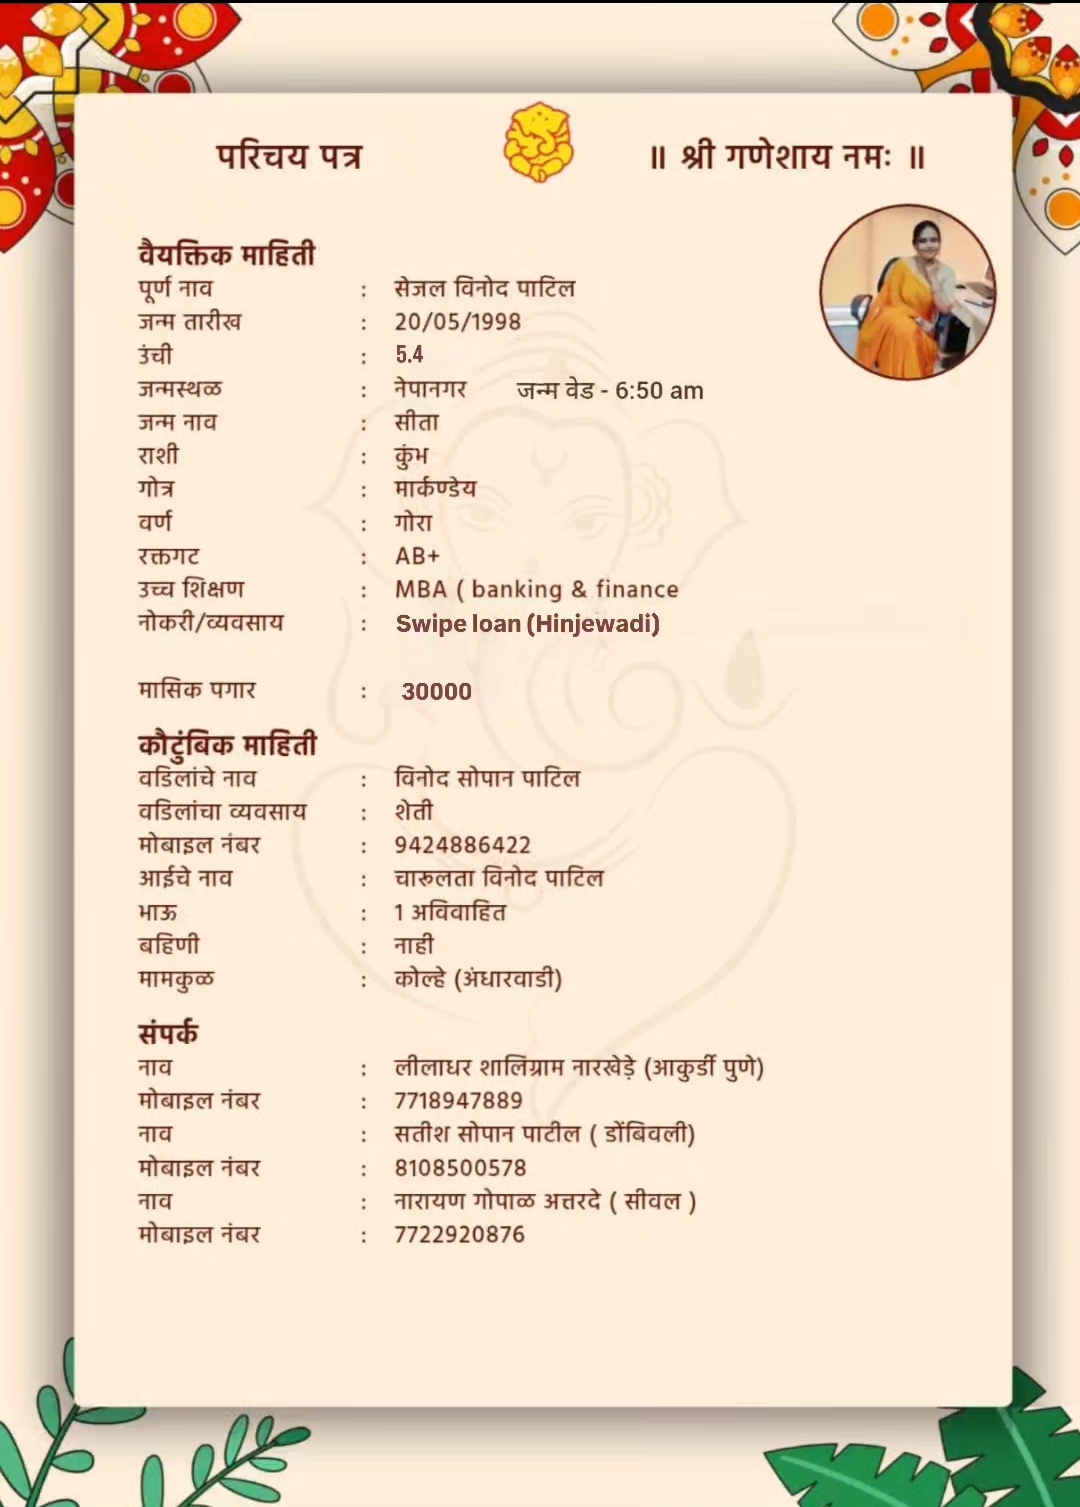 परिचय पत्र
॥ श्री गणेशाय नमः ॥
वैयक्तिक माहिती
पूर्ण नाव : सेजल विनोद पाटिल
जन्म तारीख : 20/05/1998
उंची : 5.4
जन्मस्थळ : नेपानगर जन्म वेड - 6:50 am
जन्म नाव : सीता
राशी : कुंभ
गोत्र : मार्कण्डेय
वर्ण : गोरा
रक्तगट : AB+
उच्च शिक्षण : MBA ( banking & finance
नोकरी/व्यवसाय : Swipe loan (Hinjewadi)
मासिक पगार : 30000
कौटुंबिक माहिती
वडिलांचे नाव : विनोद सोपान पाटिल
वडिलांचा व्यवसाय : शेती
मोबाइल नंबर : 9424886422
आईचे नाव : चारूलता विनोद पाटिल
भाऊ : 1 अविवाहित
बहिणी : नाही
मामकुळ : कोल्हे (अंधारवाडी)
संपर्क
नाव : लीलाधर शालिग्राम नारखेड़े (आकुर्डी पुणे)
मोबाइल नंबर : 7718947889
नाव : सतीश सोपान पाटील ( डोंबिवली)
मोबाइल नंबर : 8108500578
नाव : नारायण गोपाळ अत्तरदे ( सीवल )
मोबाइल नंबर : 7722920876